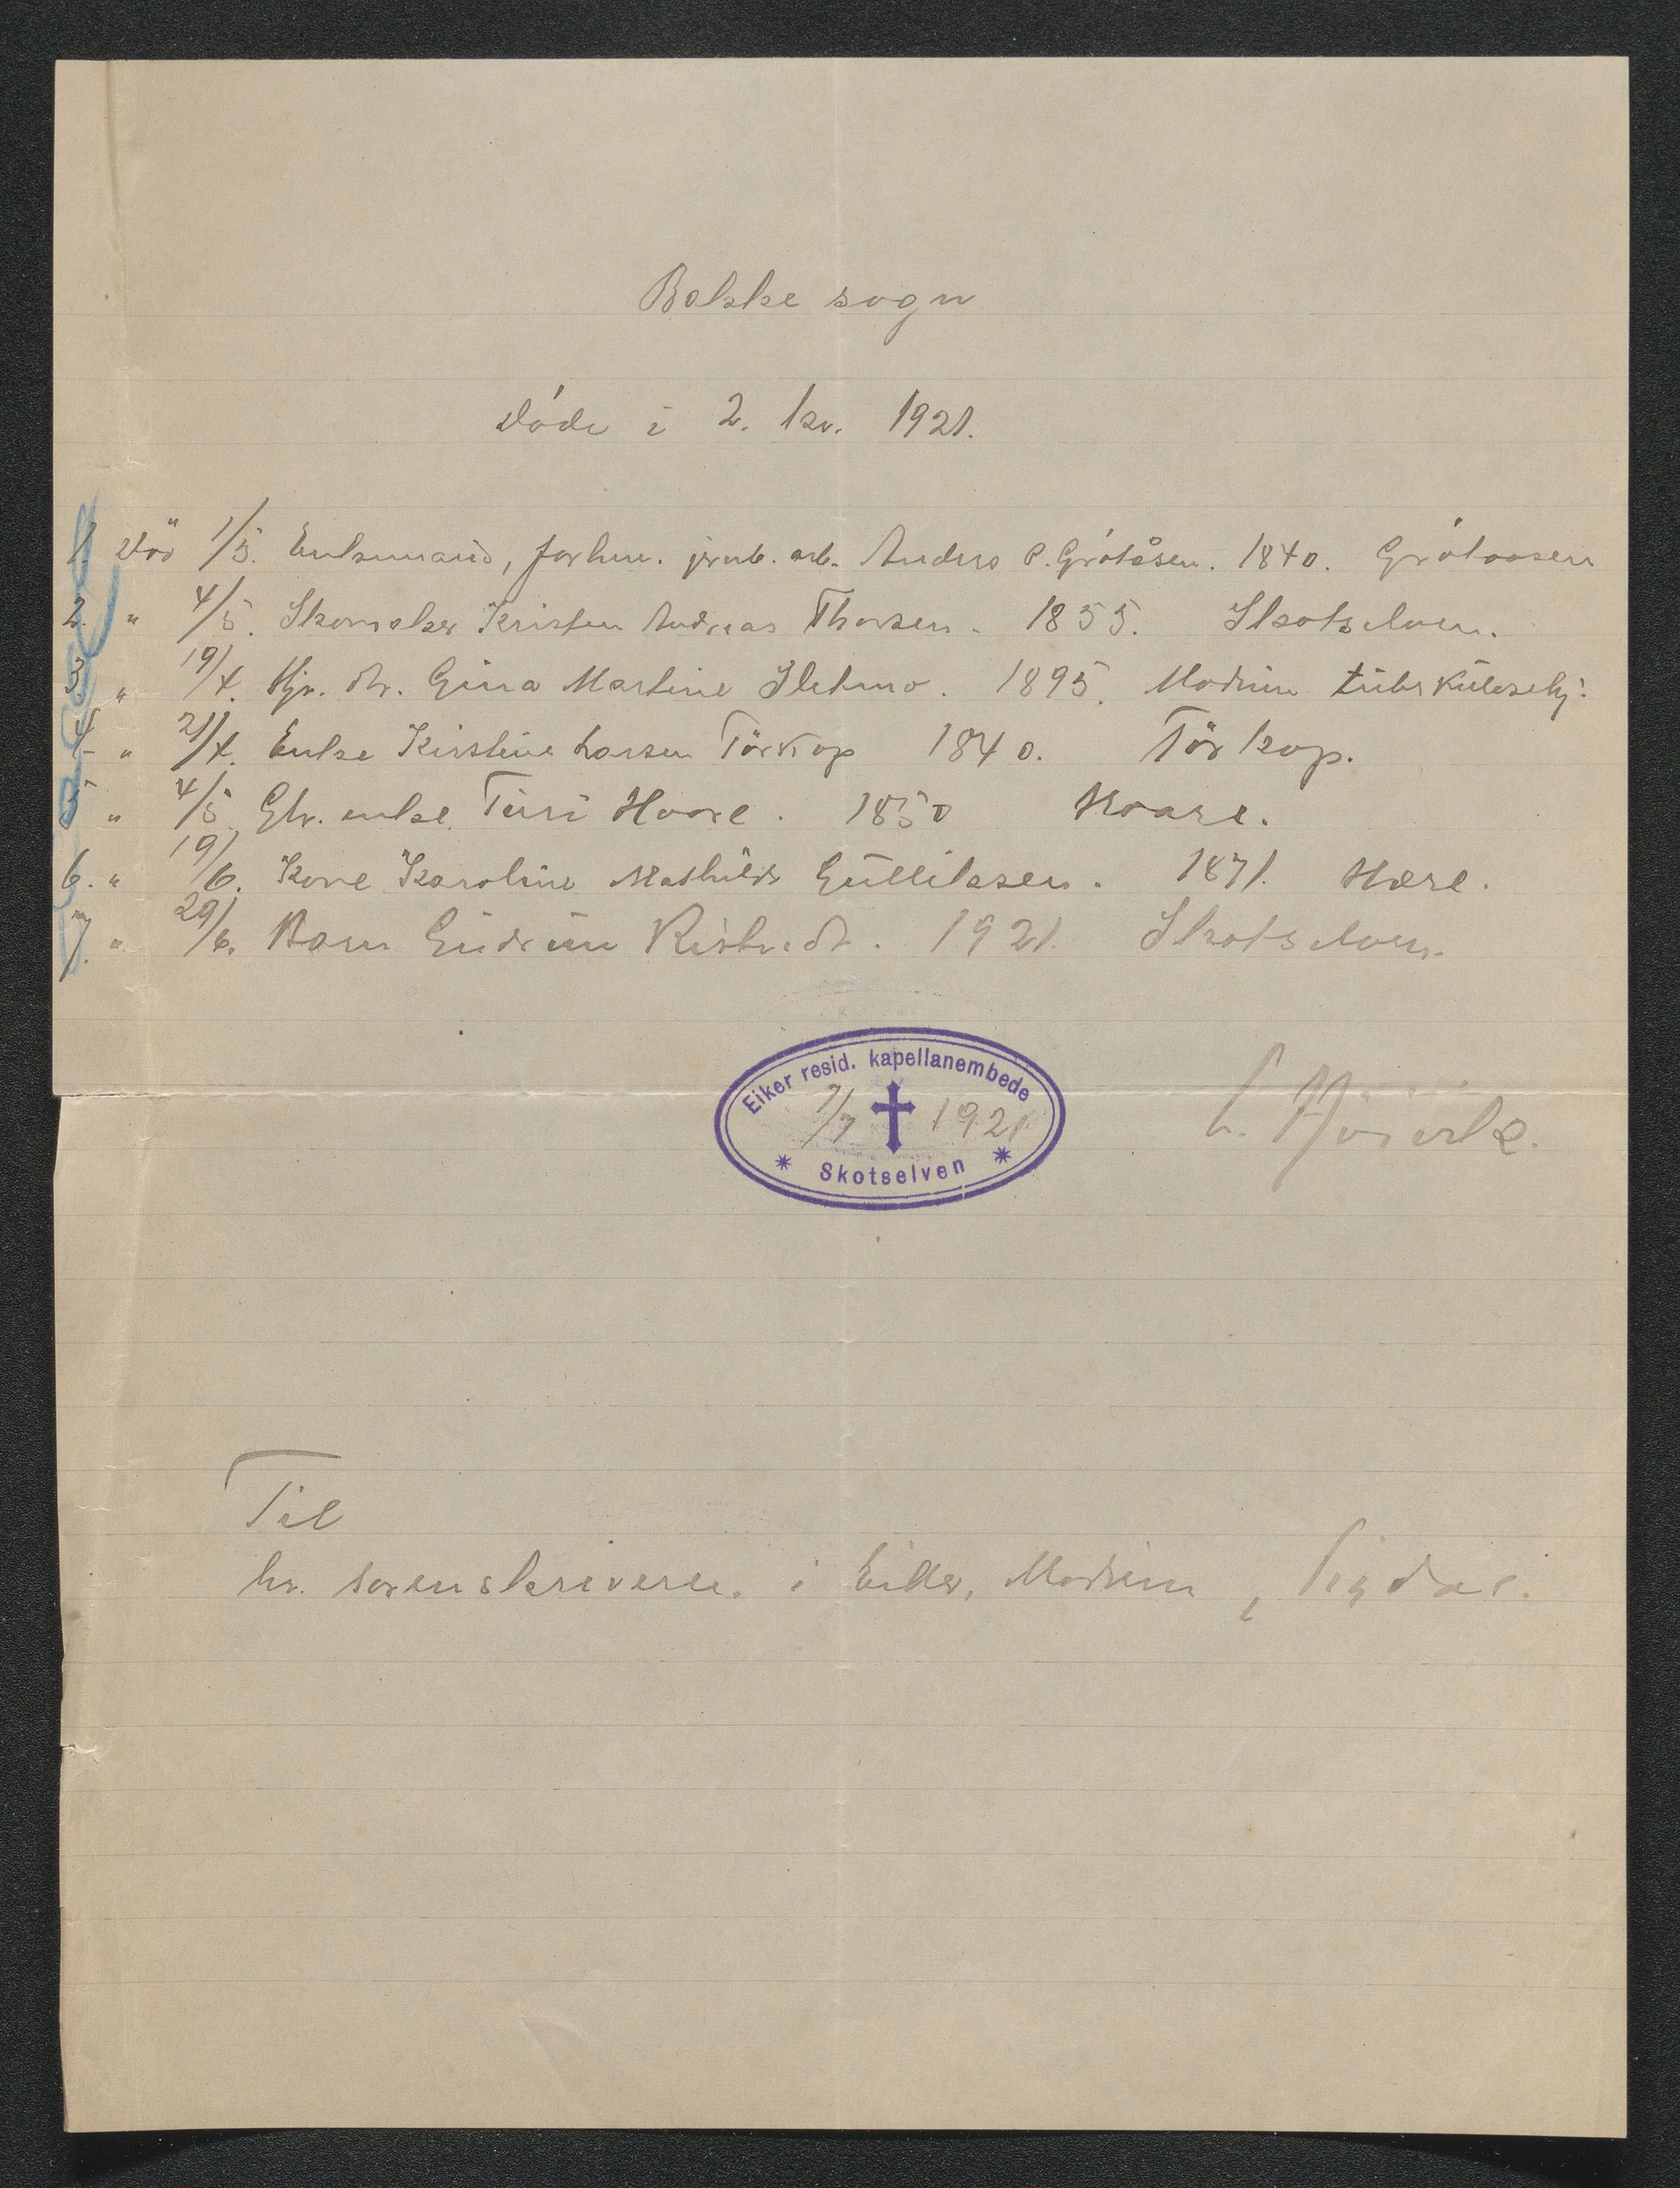 Bakke sogn
Döde i 2. kv. 1921.
1. Död 1/5. Enkemand, forhv. jernb. arb. Anders P. Grötåsen. 1840. Grötaasen
2. " 4/5. Skomaker Kristen Andreas Thorsen. 1855. Skotselven.
3. " 19/4. Hjv. dtr. Gina Martine Sletmo. 1895. Modum tuberkulosehj.
4. " 21/4. Enke Kirstine Larsen Törkop 1840. Törkop.
5 " 4/5 Gbr. enke Turi Hoare. 1850 Hoare.
6. " 19/6. Kone Karoline Mathilde Gulliksen. 1871. Hore.
7. " 29/6. Barn Gudrun 1921. Skotselven.
Eiker resid. kapellanembede
7/7 1921
Skotselven
Til
hr. sorenskriveren i Eiker, Modum, Sigdal.